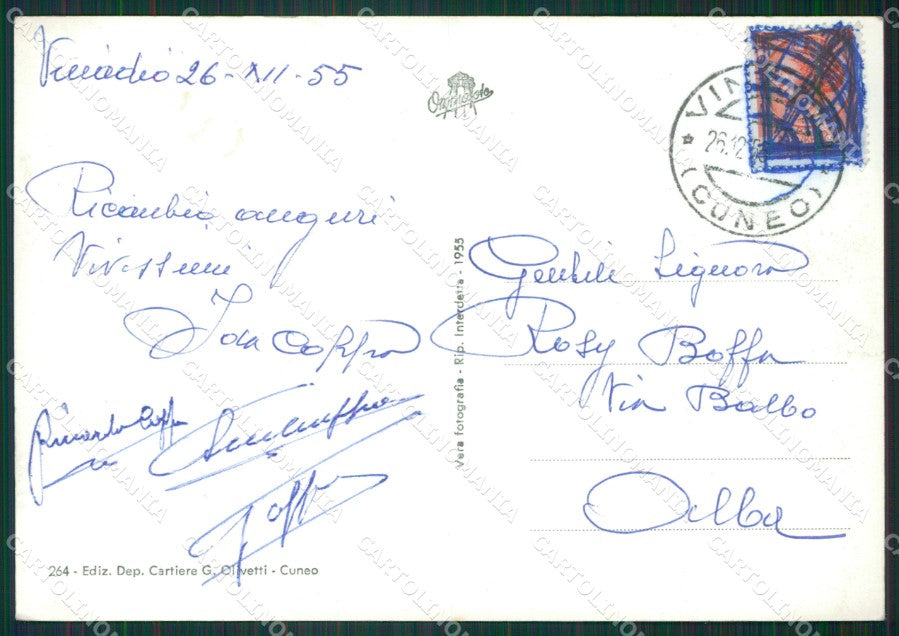 Vinadio 26-XII-55
Ricambio auguri
Vivissimi
Ida Coppa
Riccardo Coppa
264 - Ediz. Dep. Cartiere G. Olivetti - Cuneo
Vera Fotografia - Rip. Interdetta - 1955
VIN
26.12
(CUNEO)
Gentile Signora
Rosy Boffa
Via Balbo
Alba
CARTOLINOMANIA